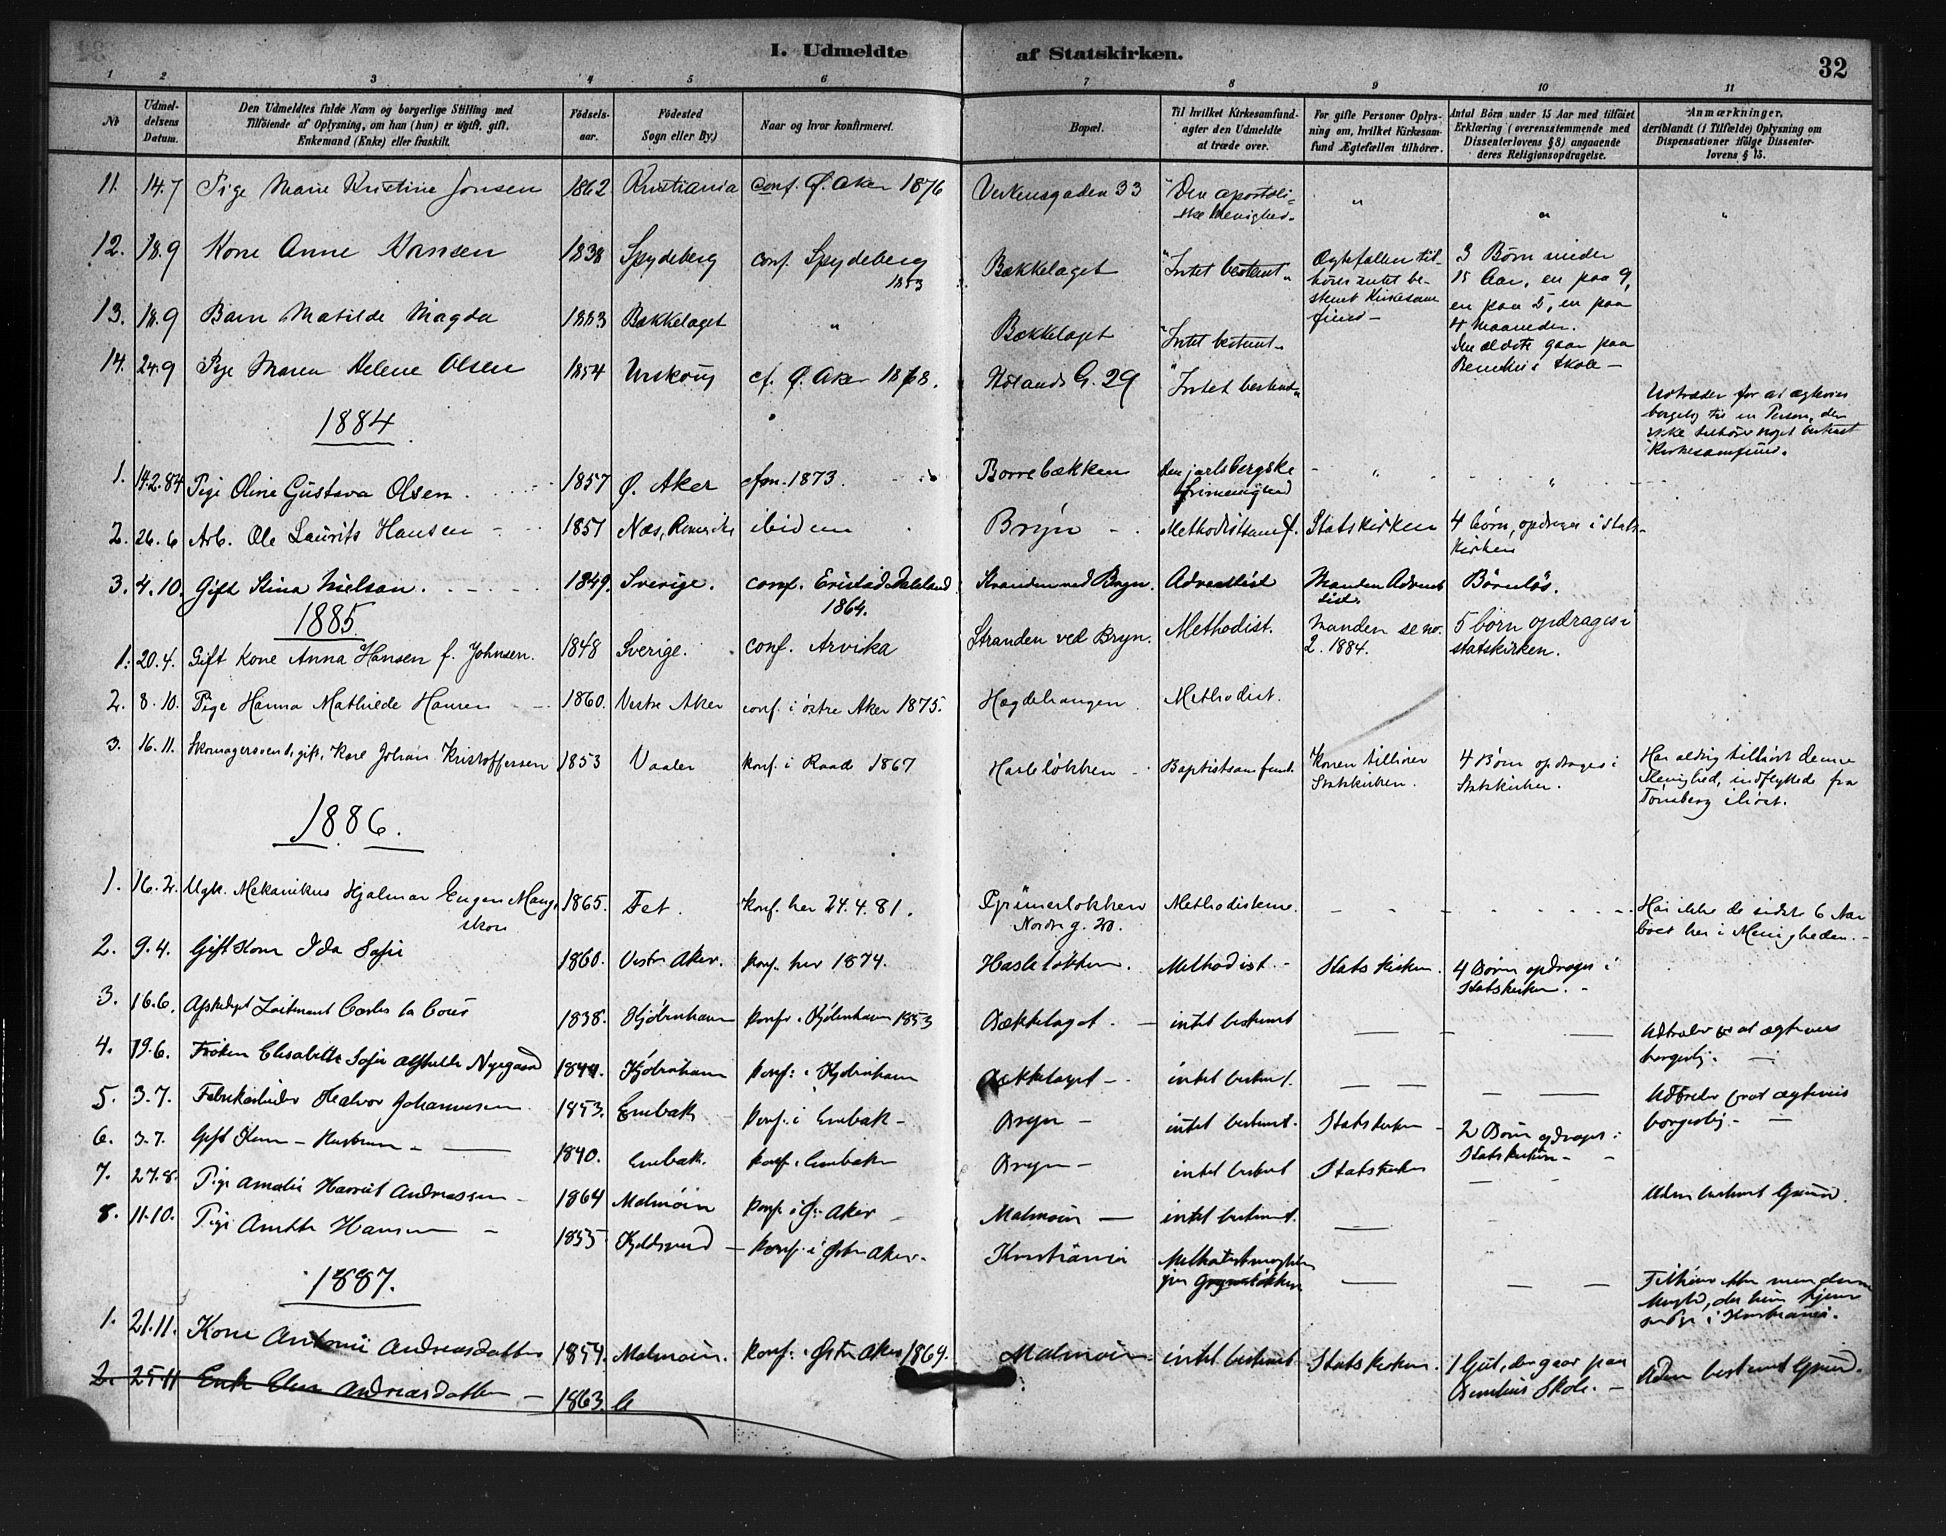 I. Udmeldte af Statskirken. 32
1 2 3 4 5 6 7 8 9 10 11
No Udmeldelsens Datum. Den Udmeldtes fulde Navn og borgerlige Stilling med Tilføiende af Oplysning, om han (hun) er ugift, gift, Enkemand (Enke) eller fraskilt. Fødselsaar. Fødested Sogn eller By) Naar og hvor konfirmeret. Bopæl. Til hvilket Kirkesamfund agter den Udmeldte at træde over. For gifte Personer Oplysning om, hvilket Kirkesamfund Ægtefællen tilhører. Antal Børn under 15 Aar med tilføiet Erklæring (overensstemmende med Dissenterlovens § 8) angaaende deres Religionsopdragelse. Anmærkninger, deriblandt (i Tilfælde) Oplysning om Dispensationer ifølge Dissenterlovens § 15.
11. 14.7 Pige Marie Kristine Jonsen 1862 Kristiania conf. Ø. Aker 1876 Verkensgaden 33 "Den apostoliske Menighed. " " "
12. 18.9 Kone Anne Hansen 1838 Spydeberg conf. Spydeberg 1853 Bækkelaget "Intet bestemt" Ægtefællen tilhører intet bestemt Kirkesamfund - 3 Børn under 15 Aar, en paa 9, en paa 5, en paa 4 Maaneder. Den ældste gaar paa Skole -
13. 18.9 Barn Matilde Magda 1883 Bækkelaget " Bækkelaget "Intet bestemt"
14. 24.9 Pige Maren Helene Olsen 1854 Urskoug cf. Ø. Aker 1868. Hølands G. 29 "Intet bestemt" Udtræder for at ægtevies borgelig til en Person, der ikke tilhører noget bestemt Kirkesamfund.
1884
1. 14.2.84 Pige Oline Gustava Olsen. 1857 Ø. Aker cfm. 1873. Borrebækken Den jarlsbergske Frimenighed - " "
2. 26.6 Arb. Ole Laurits Hansen - 1851 Næs, Romerike ibidem Bryn - Methodistsamf. Statskirken 4 børn, opdrages i Statskirken
3. 4.10. Gift Stina Nielsen. 1849. Sverige. conf. Dalsland 1864. Stranden ved Bryn. Adventist Manden Adventist. Børnløs.
1885
1. 20.4. Gift Kone Anna Hansen f. Johnsen. 1848 Sverige. conf. Arvika Stranden ved Bryn. Methodist. Manden se no. 2. 1884. 5 børn opdrages i statskirken.
2. 8.10. Pige Hanna Mathilde Hansen 1860. Vestre Aker conf. i østre Aker 1875. Hægdehaugen. Methodist.
3. 16.11. Skomagersvend, gift, Karl Johan Kristoffersen 1853 Vaaler konf. i Raade 1867 Hasleløkken - Baptistsamfund. Konen tilhører Statskirken. 4 Børn opdrages i Statskirken. Har aldrig tilhørt denne Menighed, indflyttede fra Tønsberg ihøst.
1886.
1. 16.2. Ugift. Mekanikus Hjalmar Eugen 1865. Fet. konf. her 24.4.81. Grünerløkken Nordre g. 20. Methodisterne. Har ikke de sidste 6 Aar boet her i Menigheden.
2. 9.4. Gift Kone Ida Sofie 1860. Vestre Aker. konf. her 1874. Hasleløkken. Methodist. - Statskirken. 4 Børn opdrages i Statskirken.
3. 16.6. Afskediget Løitnant Carles la Cour 1838. Kjøbenhavn konf. i Kjøbenhavn 1853 Bækkelaget. - intet bestemt — — Udtræder for at ægtevies borgerlig. —
4. 19.6. Frøken Elisabeth Sofie Nyegaard 1844. Kjøbenhavn konf: i Kjøbenhavn Bækkelaget - intet bestemt. — —
5. 3.7. Fabrikarbeider Halvor Johannesen 1853. Enebak konf. i Enebak - Bryn - intet bestemt. Statskirken - 2 Børn opdrages i Statskirken - Udtræder for at ægtevies borgerlig. —
6. 3.7. Gift - - — 1840. Enebak. konf. i Enebak Bryn - intet bestemt Statskirken
7. 27.8. Pige Amalie Harriet Andreassen - 1864 Malmøen konf. i Ø. Aker - Malmøen — intet bestemt. — Uden bestemt Grund.
8. 11.10. Pige Anette Hansen - 1855 - konf. i Østre Aker. Kristiania — — Kristiania.
1887.
1. 21.11. Kone Antonie Andreasdatter 1854. Malmøen. konf. i Østre Aker 1869. Malmøen. intet bestemt Statskirken. 1 Gut, der gaar paa Skole. — Uden bestemt Grund.
2. 25.11 Enke Andreasdatter - 1863.